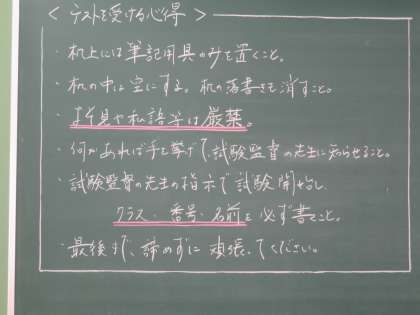 ＜テストを受ける心得＞
・机上には筆記用具のみを置くこと。
・机の中は空にする。机の落書きも消すこと。
・よそ見や私語等は厳禁。
・何かあれば手を挙げて、試験監督の先生に知らせること。
・試験監督の先生の指示で試験開始し、
クラス・番号・名前を必ず書くこと。
・最後まで、諦めずに頑張ってください。